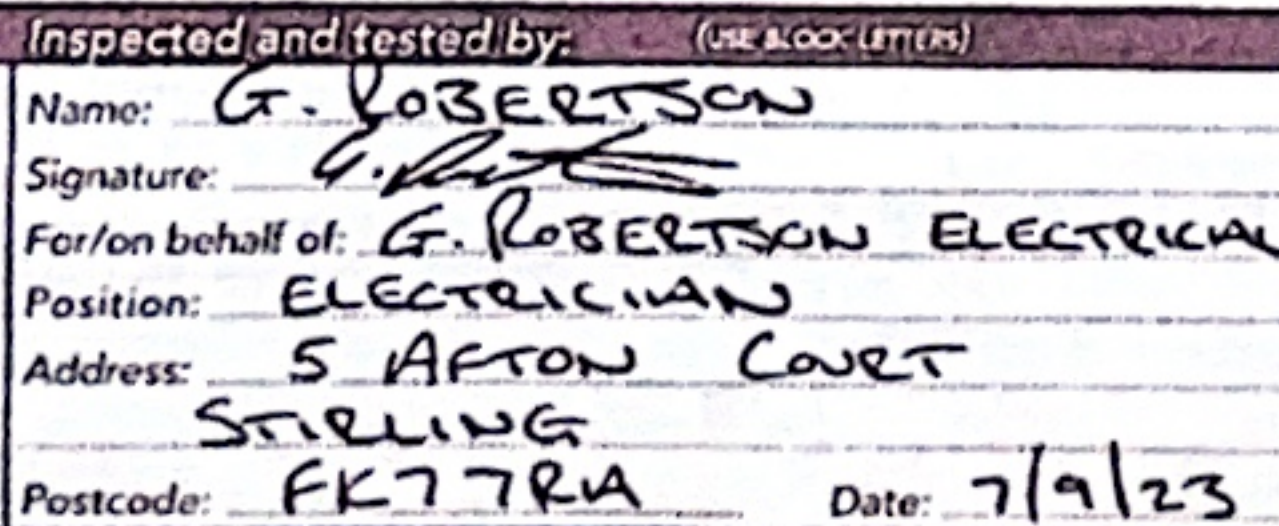 Inspected and tested by: (USE BLOCK LETTERS)
Name: G. ROBERTSON
Signature: G.
For/on behalf of: G. ROBERTSON ELECTRICAL
Position: ELECTRICIAN
Address: 5 AFTON COURT
STIRLING
Postcode: FK7 7RA Date: 7/9/23